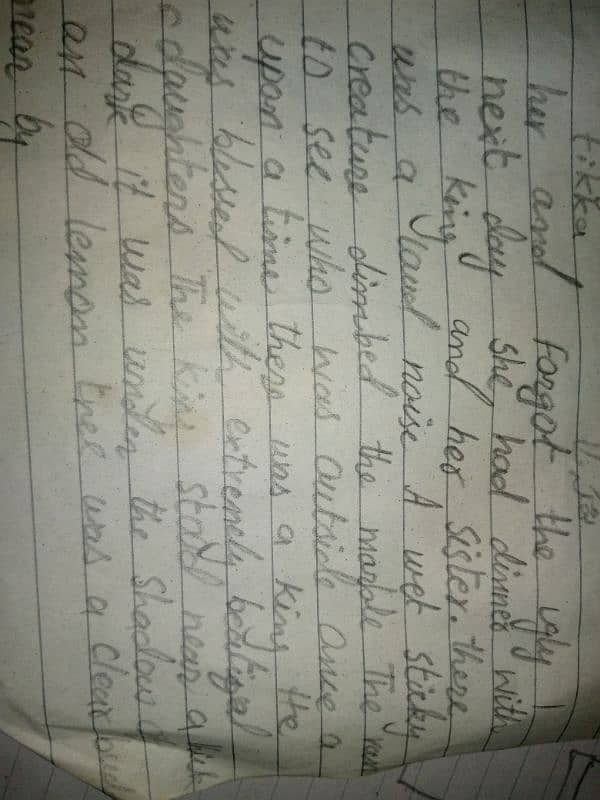 tikka
her and forgot the ugly
next day she had dinner with
the king and her sister. there
was a loud noise A wet sticky
creature climbed the marble The ran
to see who was outside once a
upon a time there was a king He
was blissed with extremely
daughters The king stayd near a
dark it was under the shadow
an old lemon tree was a clear
near by